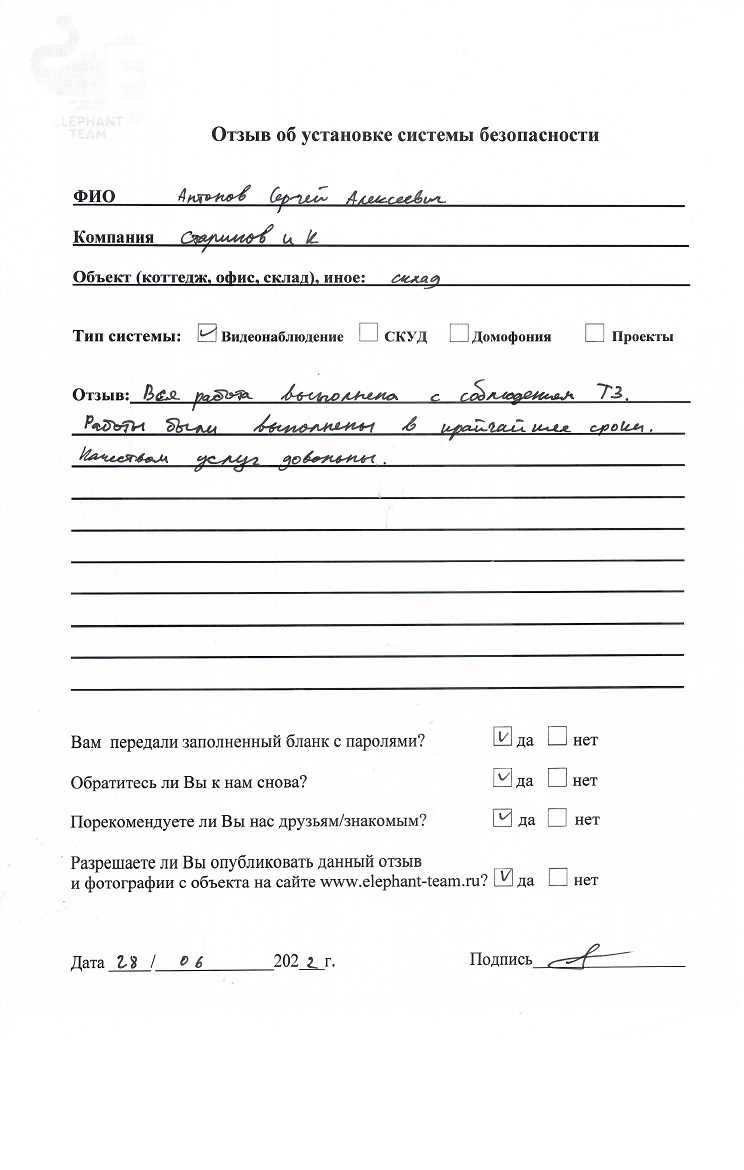 ELEPHANT
TEAM
Отзыв об установке системы безопасности
ФИО Антонов Сергей Алексеевич
Компания Старинов и К
Объект (коттедж, офис, склад), иное: склад
Тип системы: Видеонаблюдение СКУД Домофония Проекты
Отзыв: Вся работа выполнена с соблюдением ТЗ.
Работы были выполнены в крайчайшие сроки.
Качеством услуг довольны.
Вам передали заполненный бланк с паролями? да нет
Обратитесь ли Вы к нам снова? да нет
Порекомендуете ли Вы нас друзьям/знакомым? да нет
Разрешаете ли Вы опубликовать данный отзыв
и фотографии с объекта на сайте www.elephant-team.ru? да нет
Дата 28 / 06 2022 г. Подпись